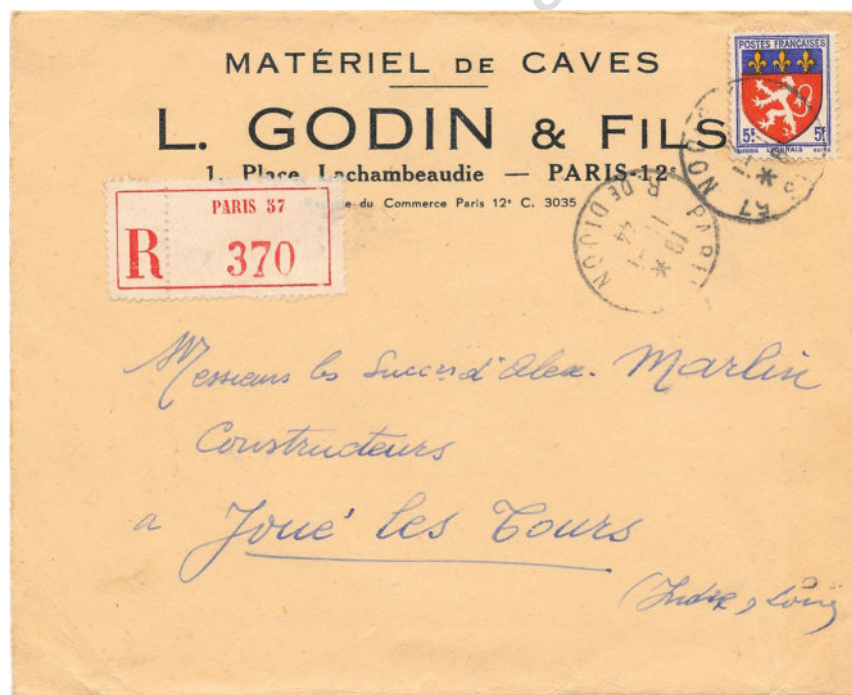 MATÉRIEL DE CAVES
L. GODIN & FILS
1, Place Lachambeaudie — PARIS-12e
du Commerce Paris 12e C. 3035
POSTES FRANÇAISES
5F 5F
LYONNAIS
PARIS 37
R 370
PARIS
R. DE DIJON
18
44
57
Messieurs les Succrs d'Alex. Marlin
Constructeurs
a Joué les Tours
(Indre & Loire)